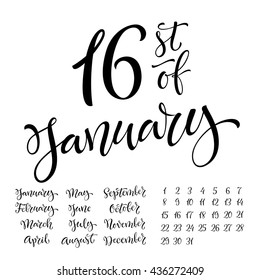 16 st of
January
January May September
February June October
March July November
April August December
1 2 3 4 5 6 7
8 9 10 11 12 13 14
15 16 17 18 19 20 21
22 23 24 25 26 27 28
29 30 31
shutterstock.com · 436272409